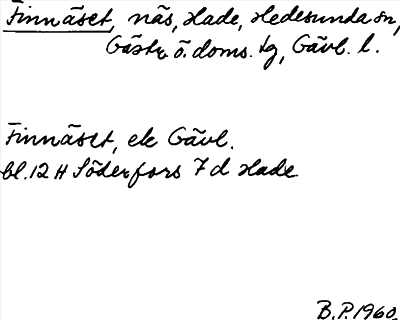 Finnäset, näs, Hade, Hedesunda sn,
Gästr. ö. doms. tg, Gävl. l.
Finnäset, ek Gävl.
bl. 12 H Söderfors 7 d Hade
B.P. 1960.